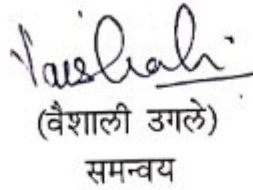 Vaishali
(वैशाली उगले)
समन्वय